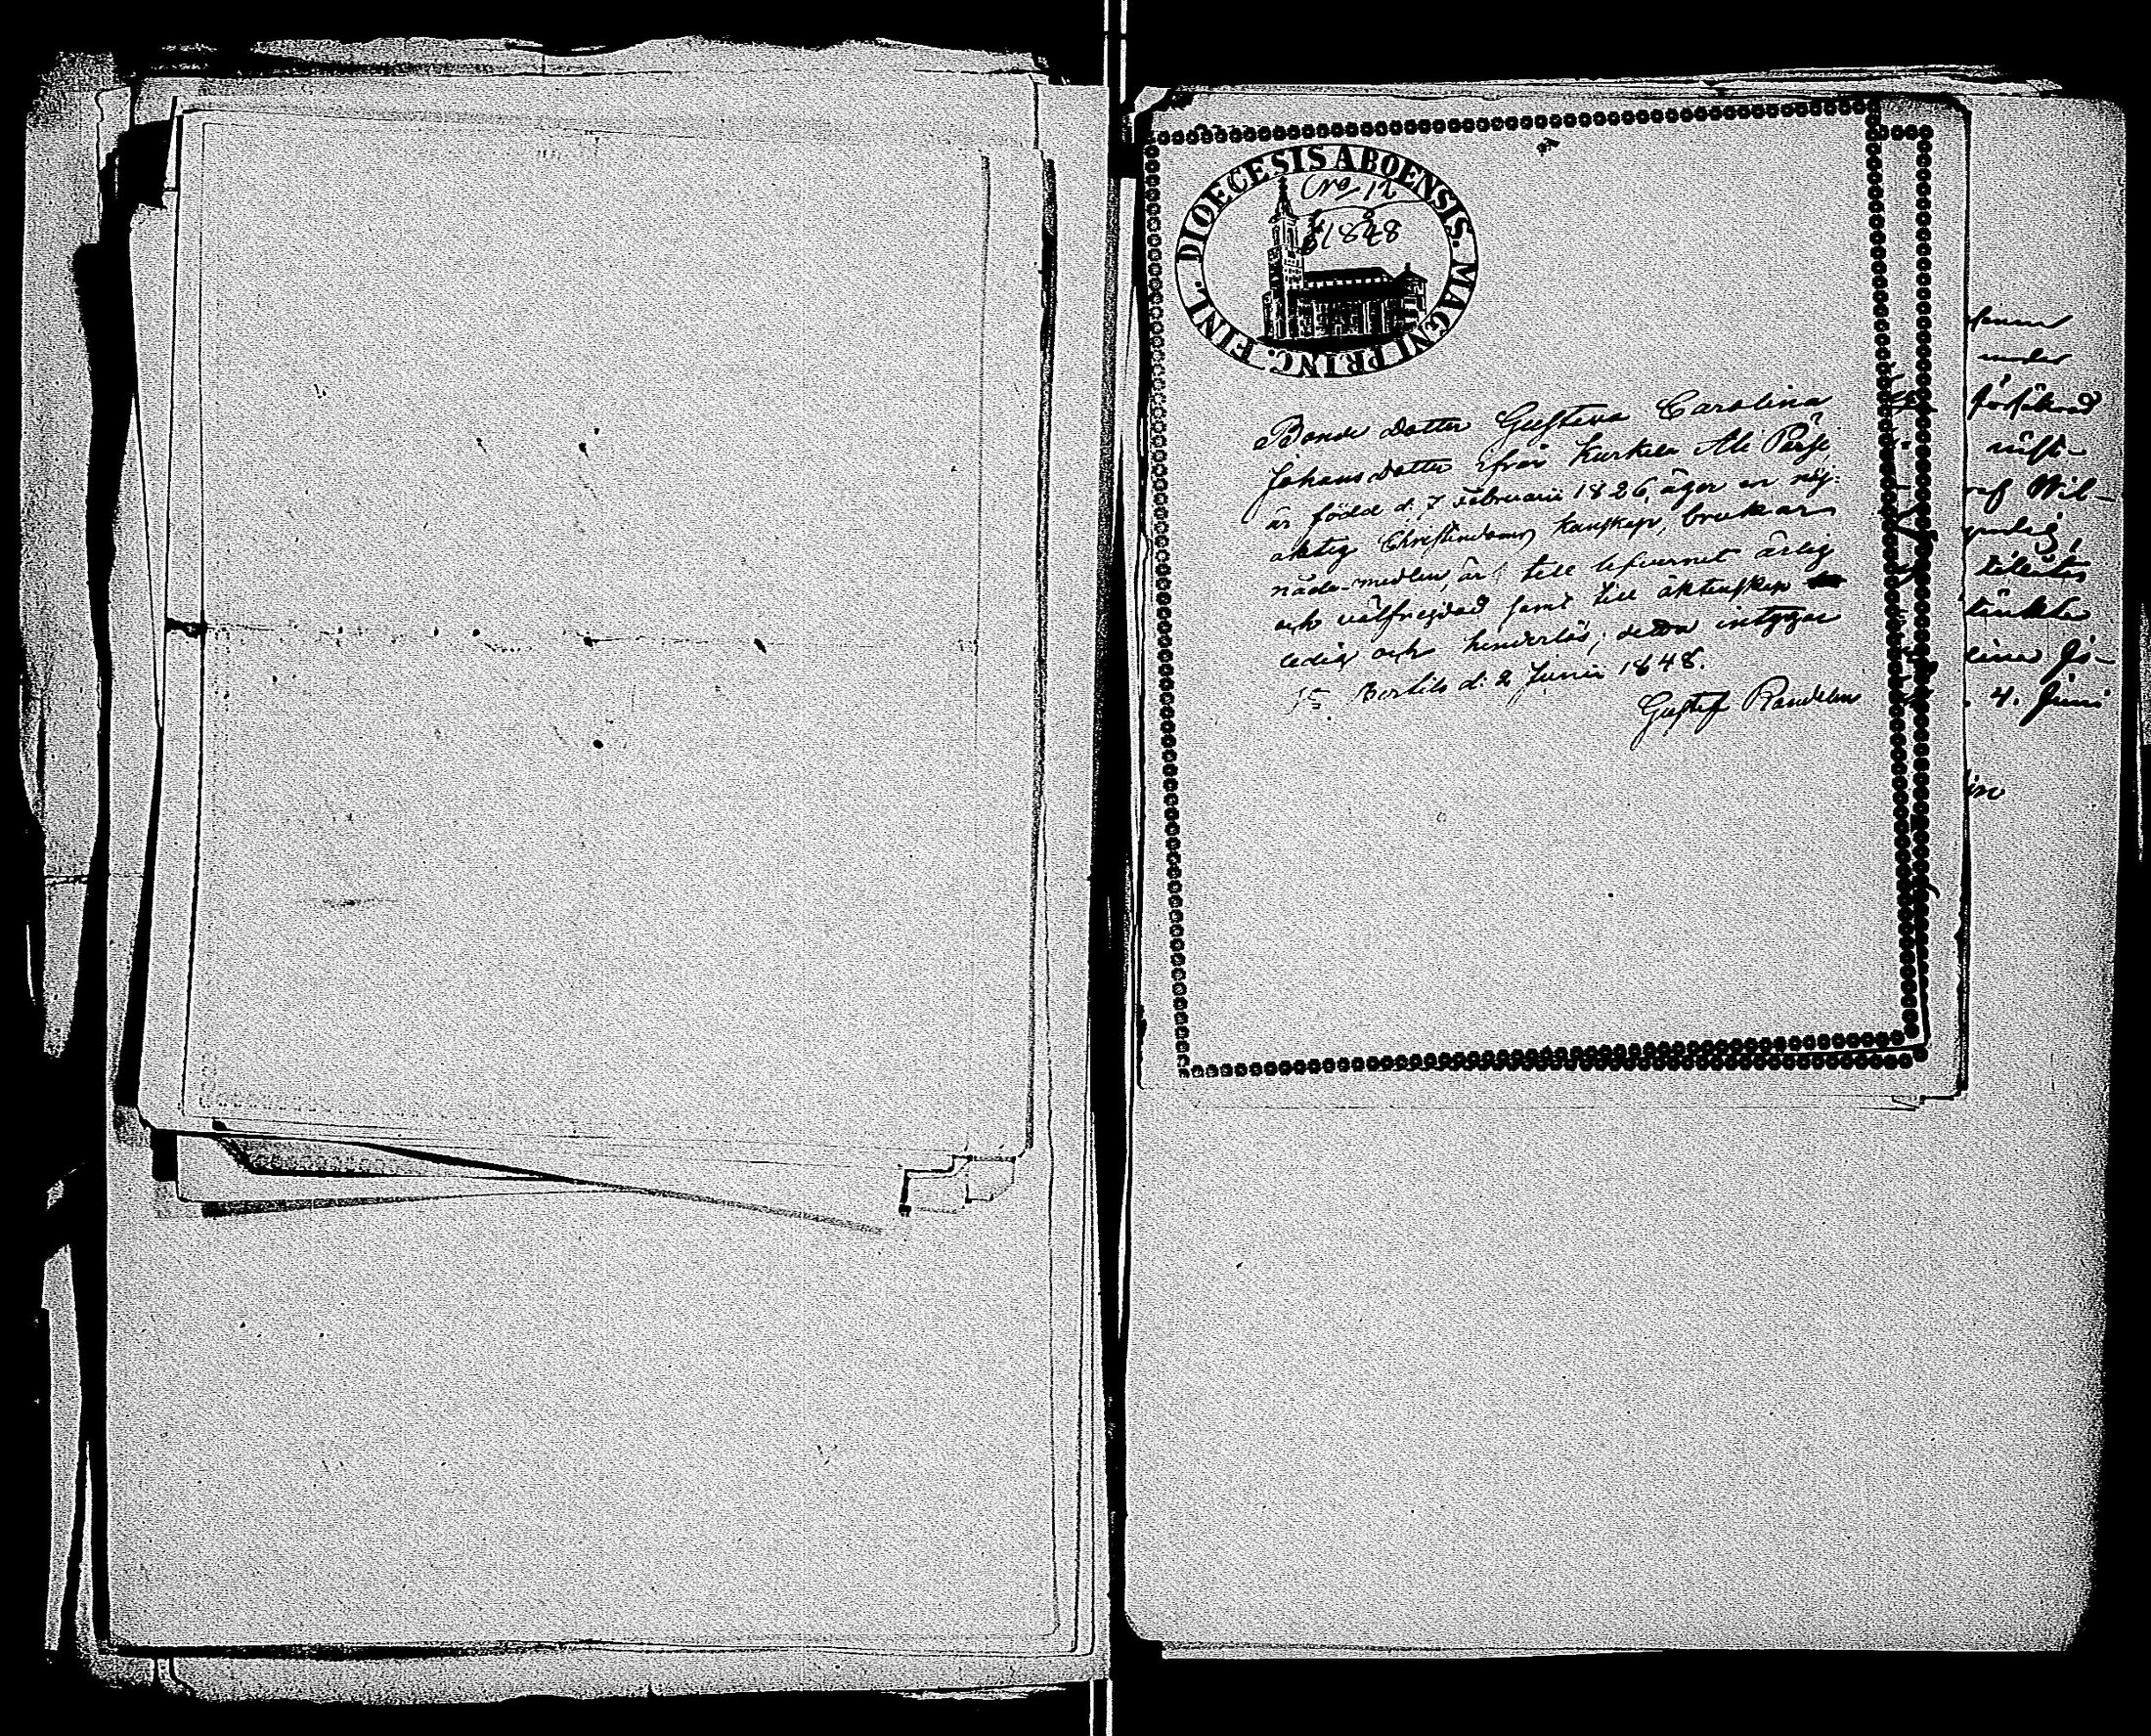 DIOECESIS ABOENSIS. MAGNI PRINC. FINL.
No 12
1848
Bonde Dotter Gustava Carolina
Johans Dotter ifrån Kurkela Ali Pärsi
är född d. 7 Februarii 1826, äger en nöj-
aktig Christendoms kunskap, brukar
nåde-medlen, är till lefvernet ärlig
och välfrejdad samt till äktenskap
ledig och hinderlös; detta intygar
d. 2 Junii 1848.
Gustaf Randelin
under
försäkrad
näst-
af Wil-
tillåtes
tänkta
Jo-
4. Juni